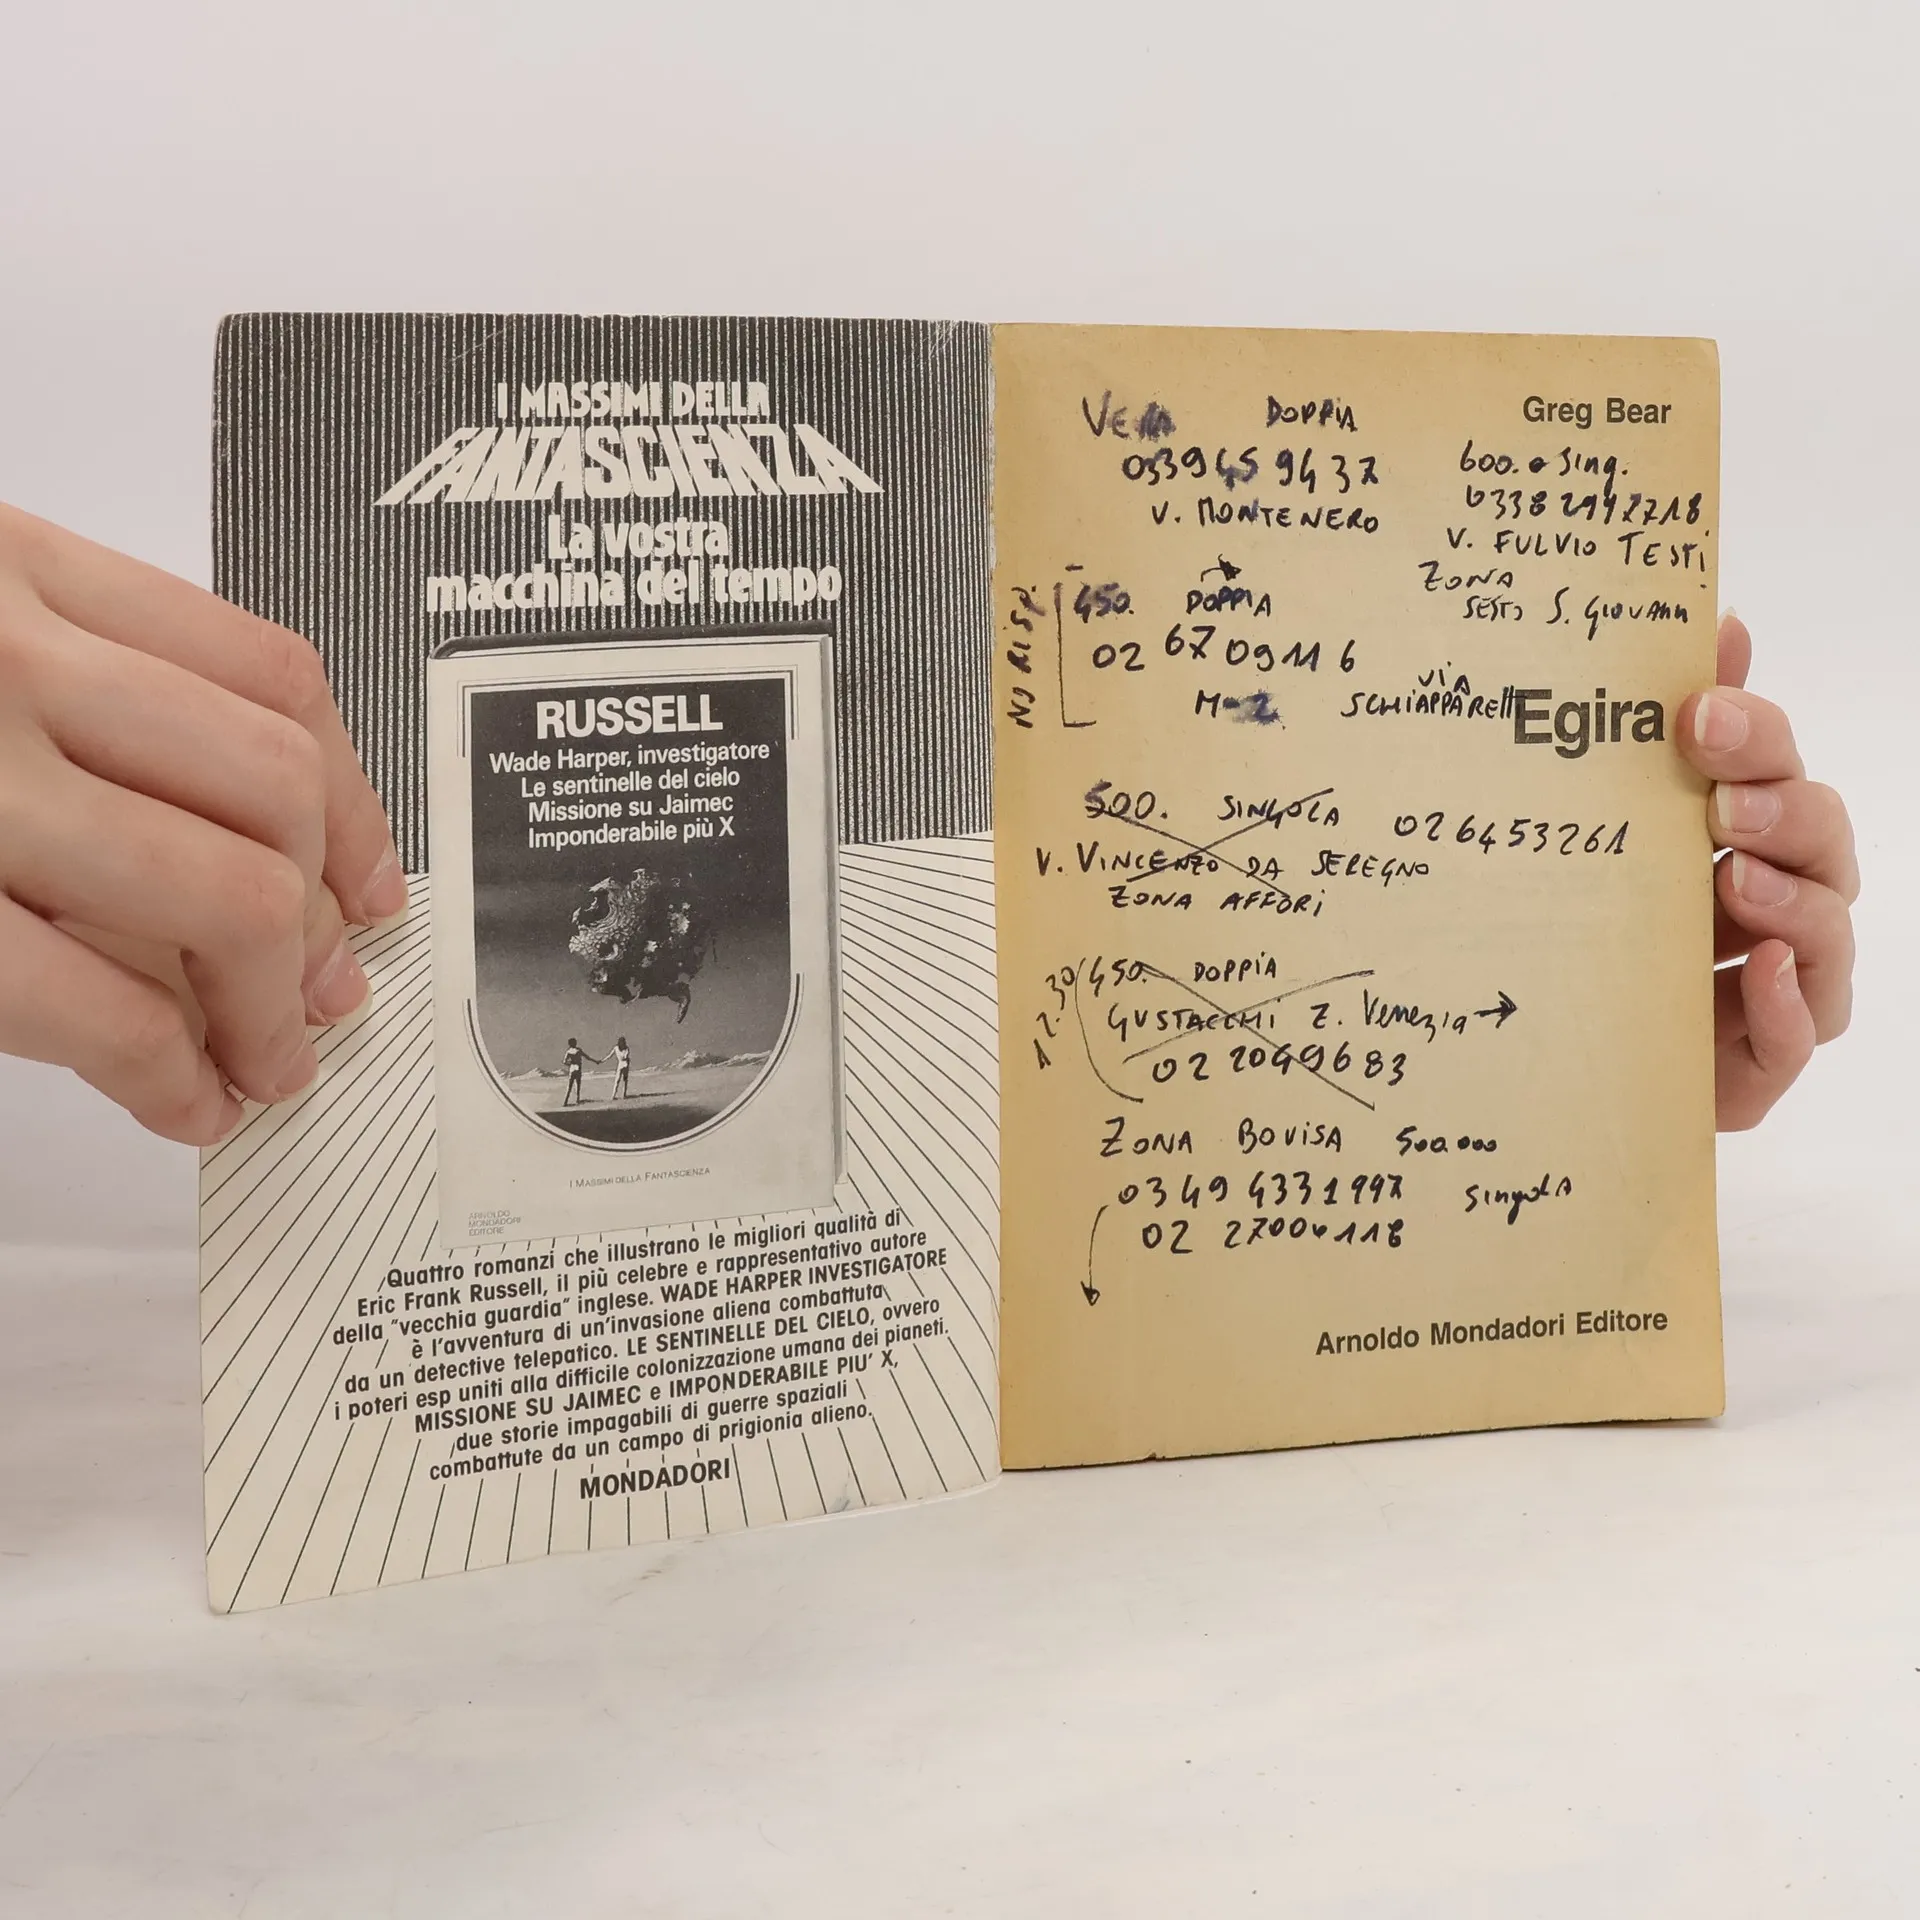 I MASSIMI DELLA
FANTASCIENZA
La vostra
macchina del tempo
RUSSELL
Wade Harper, investigatore
Le sentinelle del cielo
Missione su Jaimec
Imponderabile più X
I MASSIMI DELLA FANTASCIENZA
ARNOLDO
MONDADORI
EDITORE
Quattro romanzi che illustrano le migliori qualità di
Eric Frank Russell, il più celebre e rappresentativo autore
della "vecchia guardia" inglese. WADE HARPER INVESTIGATORE
è l'avventura di un'invasione aliena combattuta
da un detective telepatico. LE SENTINELLE DEL CIELO, ovvero
i poteri esp uniti alla difficile colonizzazione umana dei pianeti.
MISSIONE SU JAIMEC e IMPONDERABILE PIU' X,
due storie impagabili di guerre spaziali
combattute da un campo di prigionia alieno.
MONDADORI
Greg Bear
DOPPIA
0339 45 9437
V. MONTENERO
600. Sing.
V. FULVIO TESTI
ZONA
SESTO S. GIOVANNI
NO RISP.
450. DOPPIA
02 67 09116
VIA
SCHIAPPARELLI
Egira
500. SINGOLA 026453261
V. VINCENZO DA SEREGNO
ZONA AFFORI
12.30
450. DOPPIA
GUSTACCHI Z. Venezia →
02 2049683
ZONA BOVISA 500.000
0349 4331997 singola
02 27004118
Arnoldo Mondadori Editore